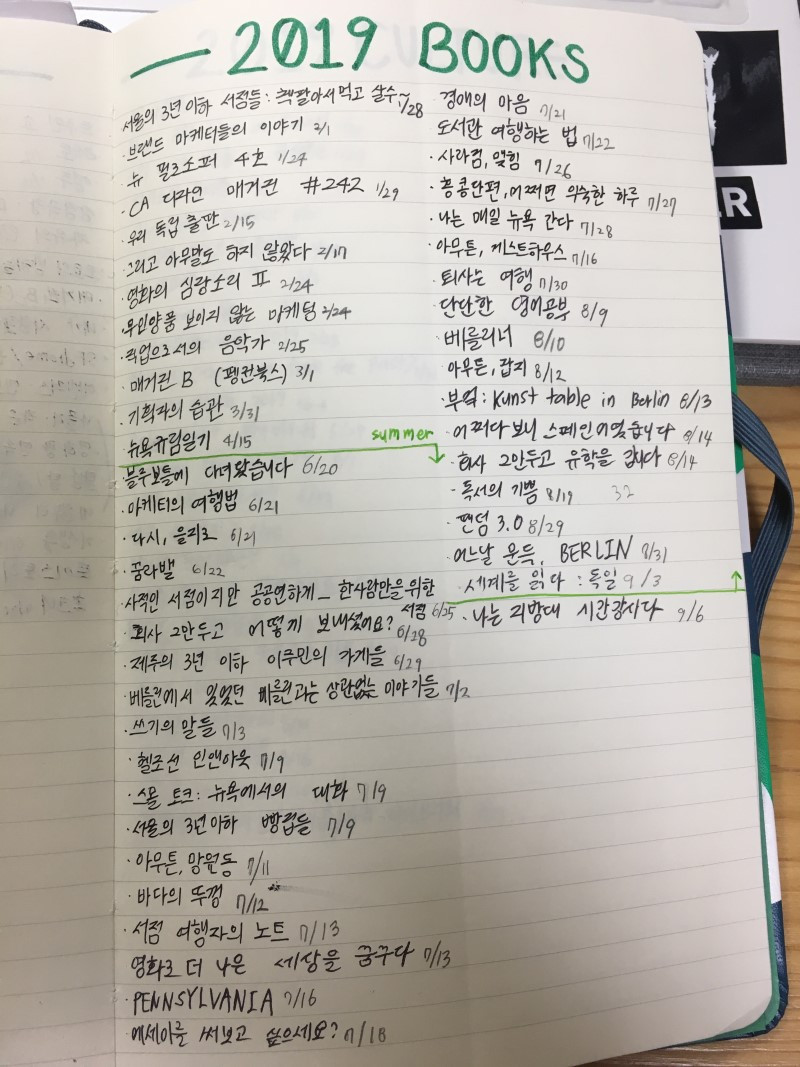 — 2019 BOOKS
서울의 3년 이하 서점들: 책 팔아서 먹고 살수~ 1/28
· 브랜드 마케터들의 이야기 2/1
· 뉴 필로소퍼 4호 1/24
· CA 디자인 매거진 #242 1/29
· 우리 독립 출판 2/15
· 그리고 아무말도 하지 않았다 2/17
· 영화의 심장소리 Ⅱ 2/24
· 무인양품 보이지 않는 마케팅 2/24
· 직업으로서의 음악가 2/25
· 매거진 B (펭귄북스) 3/1
· 기획자의 습관 3/31
· 뉴욕규림일기 4/15
summer
· 블루보틀에 다녀왔습니다 6/20
· 마케터의 여행법 6/21
· 다시, 을지로 6/21
· 꿈라밸 6/22
사적인 서점이지만 공공연하게 _ 한사람만을 위한 서점 6/25
· 회사 그만두고 어떻게 보내셨어요? 6/28
· 제주의 3년 이하 이주민의 가게들 6/29
· 베를린에서 있었던 베를린과는 상관없는 이야기들 7/2
· 쓰기의 말들 7/3
· 헬조선 인앤아웃 7/9
· 스몰 토크: 뉴욕에서의 대화 7/9
· 서울의 3년 이하 빵집들 7/9
· 아무튼, 망원동 7/11
· 바다의 뚜껑 7/12
· 서점 여행자의 노트 7/13
영화로 더 나은 세상을 꿈꾸다 7/13
· PENNSYLVANIA 7/16
· 에세이를 써보고 싶으세요? 7/18
· 경애의 마음 7/21
도서관 여행하는 법 7/22
· 사라짐, 맺힘 7/26
· 홍콩단편, 어쩌면 익숙한 하루 7/27
· 나는 매일 뉴욕 간다 7/28
· 아무튼, 게스트하우스 7/16
· 퇴사는 여행 7/30
· 단단한 영어공부 8/9
· 베를리너 8/10
· 아무튼, 잡지 8/12
· 부엌: Kunst table in Berlin 8/13
· 어쩌다 보니 스페인어였습니다 8/14
· 회사 그만두고 유학을 갑니다 8/14
· 독서의 기쁨 8/19 32
· 팬덤 3.0 8/29
· 어느날 문득, BERLIN 8/31
· 세계를 읽다: 독일 9/3
· 나는 리방대 시간강사다 9/6
ER